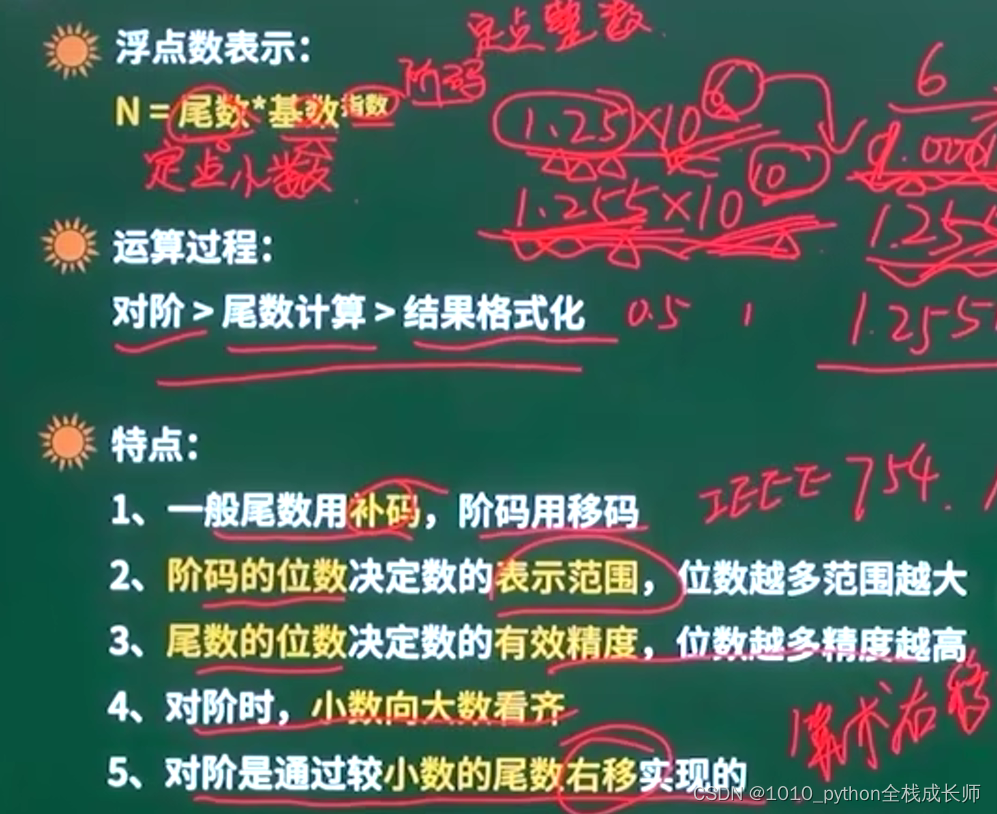 定点整数
浮点数表示:
阶码
N = 尾数*基数指数
定点小数
1.25×10 6
10
1.255×10
6
1.255
运算过程:
对阶 > 尾数计算 > 结果格式化
0.5 1
1.255
特点:
1、一般尾数用补码，阶码用移码
IEEE 754.
2、阶码的位数决定数的表示范围，位数越多范围越大
3、尾数的位数决定数的有效精度，位数越多精度越高
4、对阶时，小数向大数看齐
算术右移
5、对阶是通过较小数的尾数右移实现的
CSDN @1010_python全栈成长师